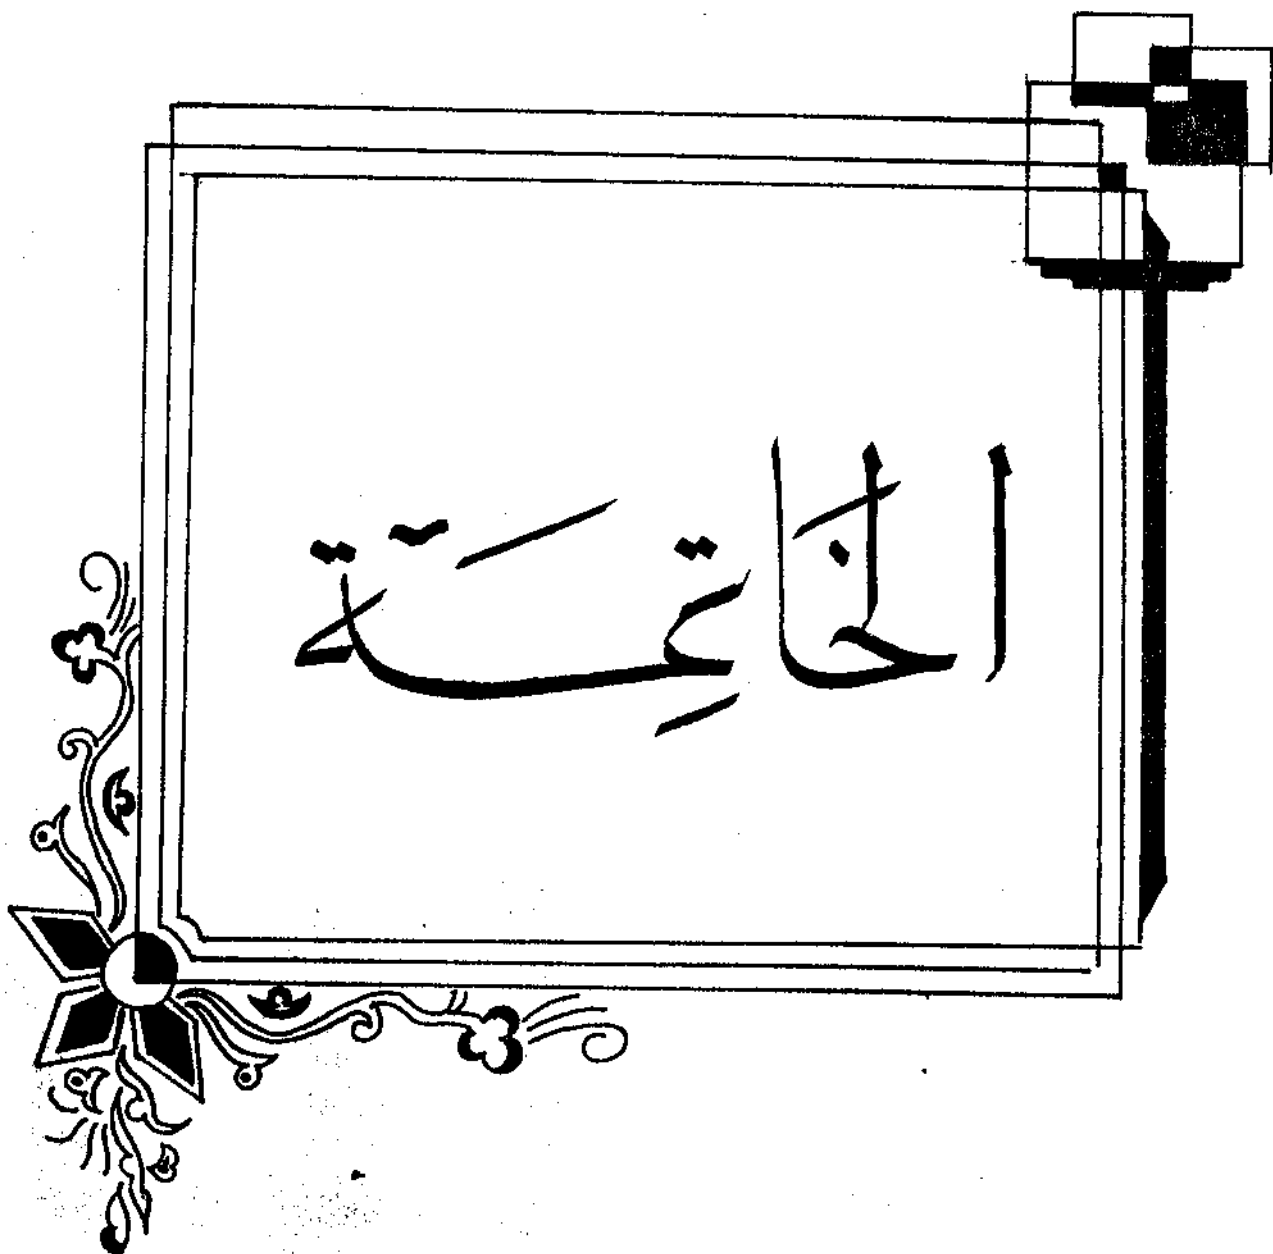 الخَاتِمَة